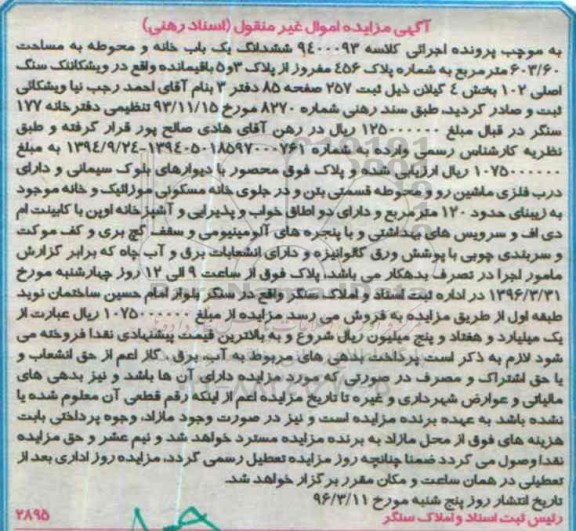 آگهی مزایده اموال غیر منقول (اسناد رهنی)
به موجب پرونده اجرائی کلاسه ۹۴۰۰۰۹۳ ششدانگ یک باب خانه و محوطه به مساحت
۶۰۳/۶۰ مترمربع به شماره پلاک ۴۵۶ مفروز از پلاک ۳و۵ باقیمانده واقع در ویشکاننک سنگ
اصلی ۱۰۲ بخش ۴ گیلان ذیل ثبت ۲۵۷ صفحه ۸۵ دفتر ۳ بنام آقای احمد رجب نیا ویشکائی
ثبت و صادر گردید، طبق سند رهنی شماره ۸۲۷۰ مورخ ۹۳/۱۱/۱۵ تنظیمی دفترخانه ۱۷۷
سنگر در قبال مبلغ ۱۲۵۰۰۰۰۰۰ ریال در رهن آقای هادی صالح پور قرار گرفته و طبق
نظریه کارشناس رسمی وارده به شماره ۱۳۹۴۰۵۰۱۸۵۹۷۰۰۰۷۶۱-۱۳۹۴/۹/۲۴ به مبلغ
۱۰۷۵۰۰۰۰۰۰ ریال ارزیابی شده و پلاک فوق محصور با دیوارهای بلوک سیمانی و دارای
درب فلزی ماشین رو و محوطه قسمتی بتن و در جلوی خانه مسکونی موزائیک و خانه موجود
به زیبنای حدود ۱۲۰ مترمربع و دارای دو اطاق خواب و پذیرایی و آشپزخانه اوپن با کابینت ام
دی اف و سرویس های بهداشتی و با پنجره های آلومینیومی و سقف گچ بری و کف موکت
و سربندی چوبی با پوشش ورق گالوانیزه و دارای انشعابات برق و آب چاه که برابر گزارش
مامور اجرا در تصرف بدهکار می باشد، پلاک فوق از ساعت ۹ الی ۱۲ روز چهارشنبه مورخ
۱۳۹۶/۳/۳۱ در اداره ثبت اسناد و املاک سنگر واقع در سنگر بلوار امام حسین ساختمان نوید
طبقه اول از طریق مزایده به فروش می رسد مزایده از مبلغ ۱۰۷۵۰۰۰۰۰۰ ریال عبارت از
یک میلیارد و هفتاد و پنج میلیون ریال شروع و به بالاترین قیمت پیشنهادی نقدا فروخته می
شود لازم به ذکر است پرداخت بدهی های مربوط به آب، برق، گاز اعم از حق انشعاب و
یا حق اشتراک و مصرف در صورتی که مورد مزایده دارای آن ها باشد و نیز بدهی های
مالیاتی و عوارض شهرداری و غیره تا تاریخ مزایده اعم از اینکه رقم قطعی آن معلوم شده یا
نشده باشد به عهده برنده مزایده است و نیز در صورت وجود مازاد، وجوه پرداختی بابت
هزینه های فوق از محل مازاد به برنده مزایده مسترد خواهد شد و نیم عشر و حق مزایده
نقدا وصول می گردد ضمنا چنانچه روز مزایده تعطیل رسمی گردد، مزایده روز اداری بعد از
تعطیلی در همان ساعت و مکان مقرر برگزار خواهد شد.
تاریخ انتشار روز پنج شنبه مورخ ۹۶/۳/۱۱
رئیس ثبت اسناد و املاک سنگر
۲۸۹۵